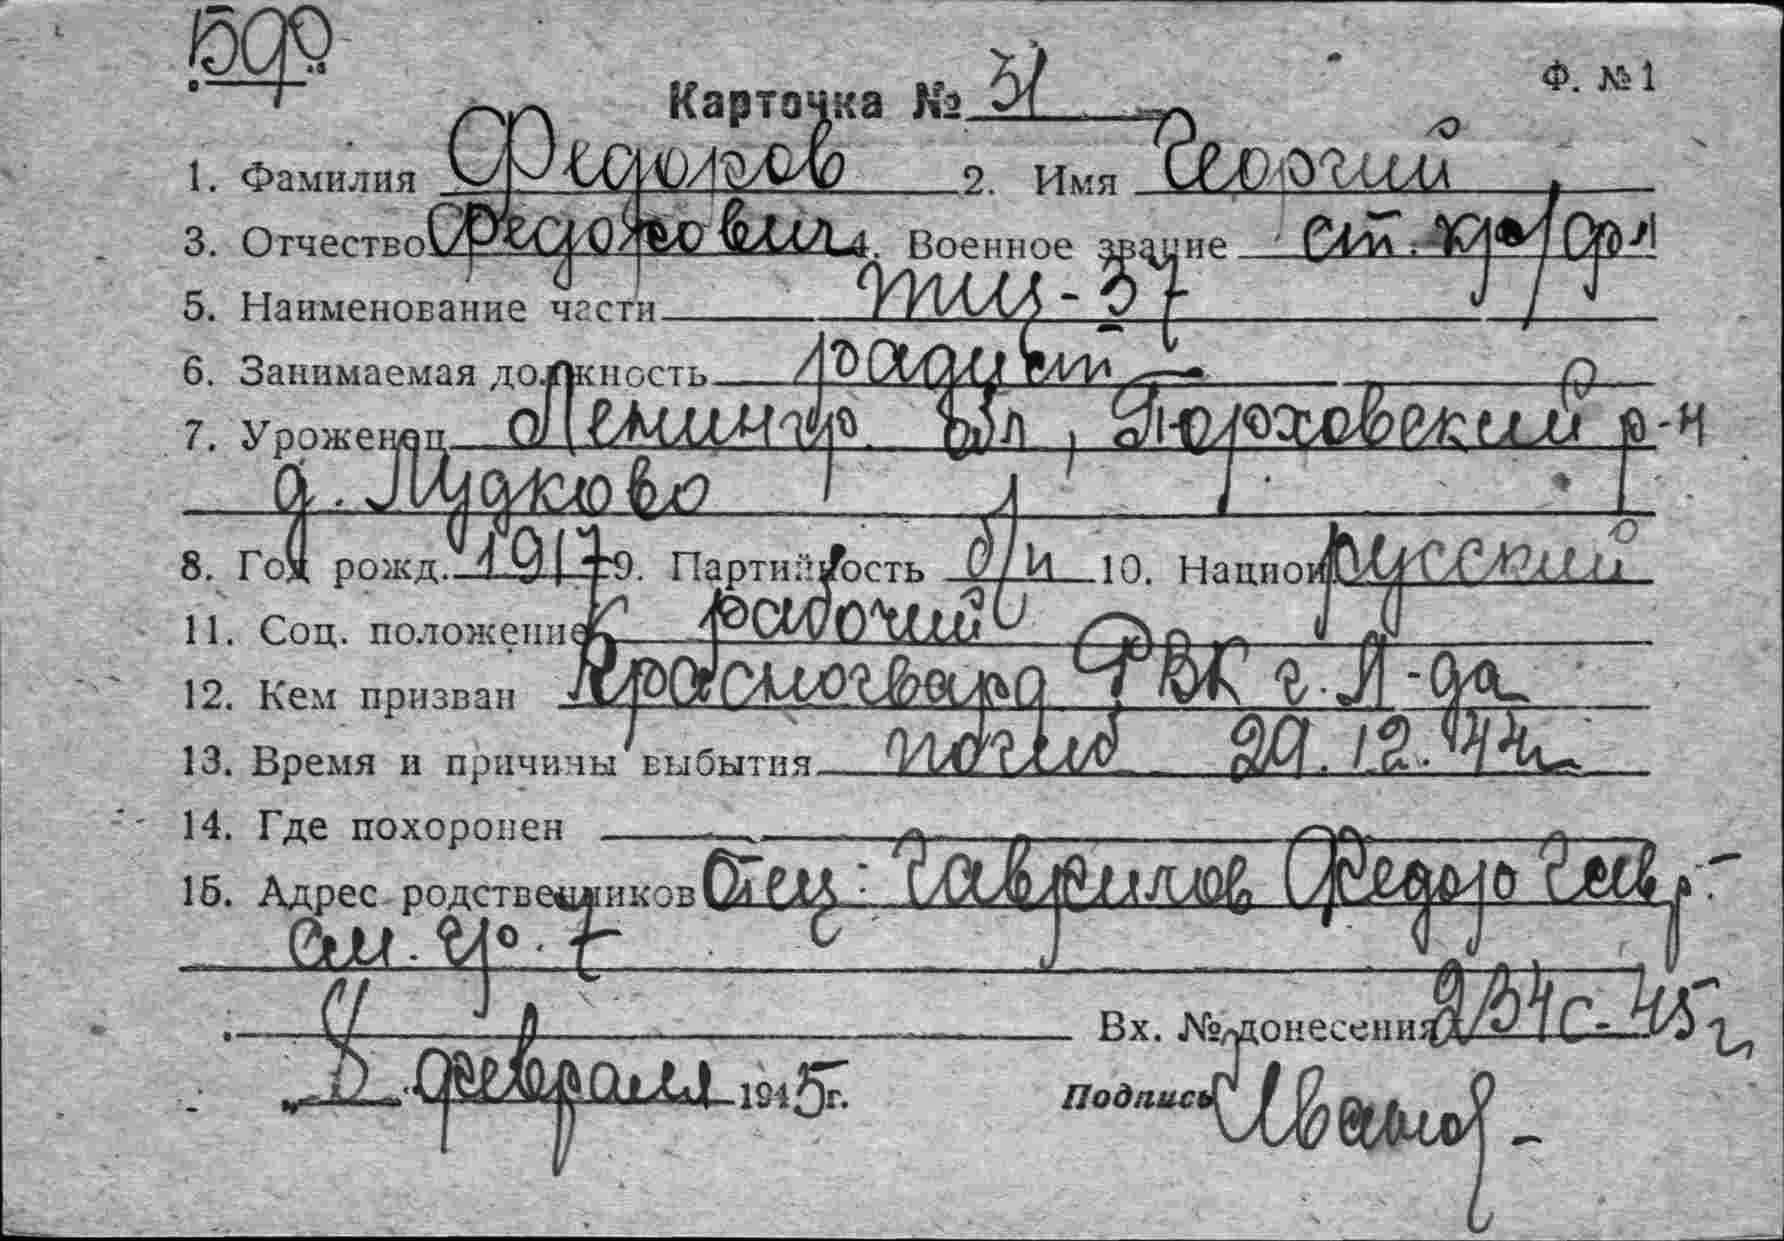 590
Ф. № 1
Карточка № 31
1. Фамилия Федоров 2. Имя Георгий
3. Отчество Федорович 4. Военное звание ст. кр/фл
5. Наименование части тщ-37
6. Занимаемая должность радист
7. Уроженец Ленингр. обл, Порховский р-н
д. Лудково
8. Год рожд. 1917 9. Партийность б/п 10. Национ русский
11. Соц. положение рабочий
12. Кем призван Красногвард РВК г. Л-да
13. Время и причины выбытия погиб 29.12.44г
14. Где похоронен
15. Адрес родственников Отец: Гаврилов Федор Гавр.-
см. гр. 7
Вх. № донесения 234с-45г
„8 февраля 1945г. Подпись Иванов